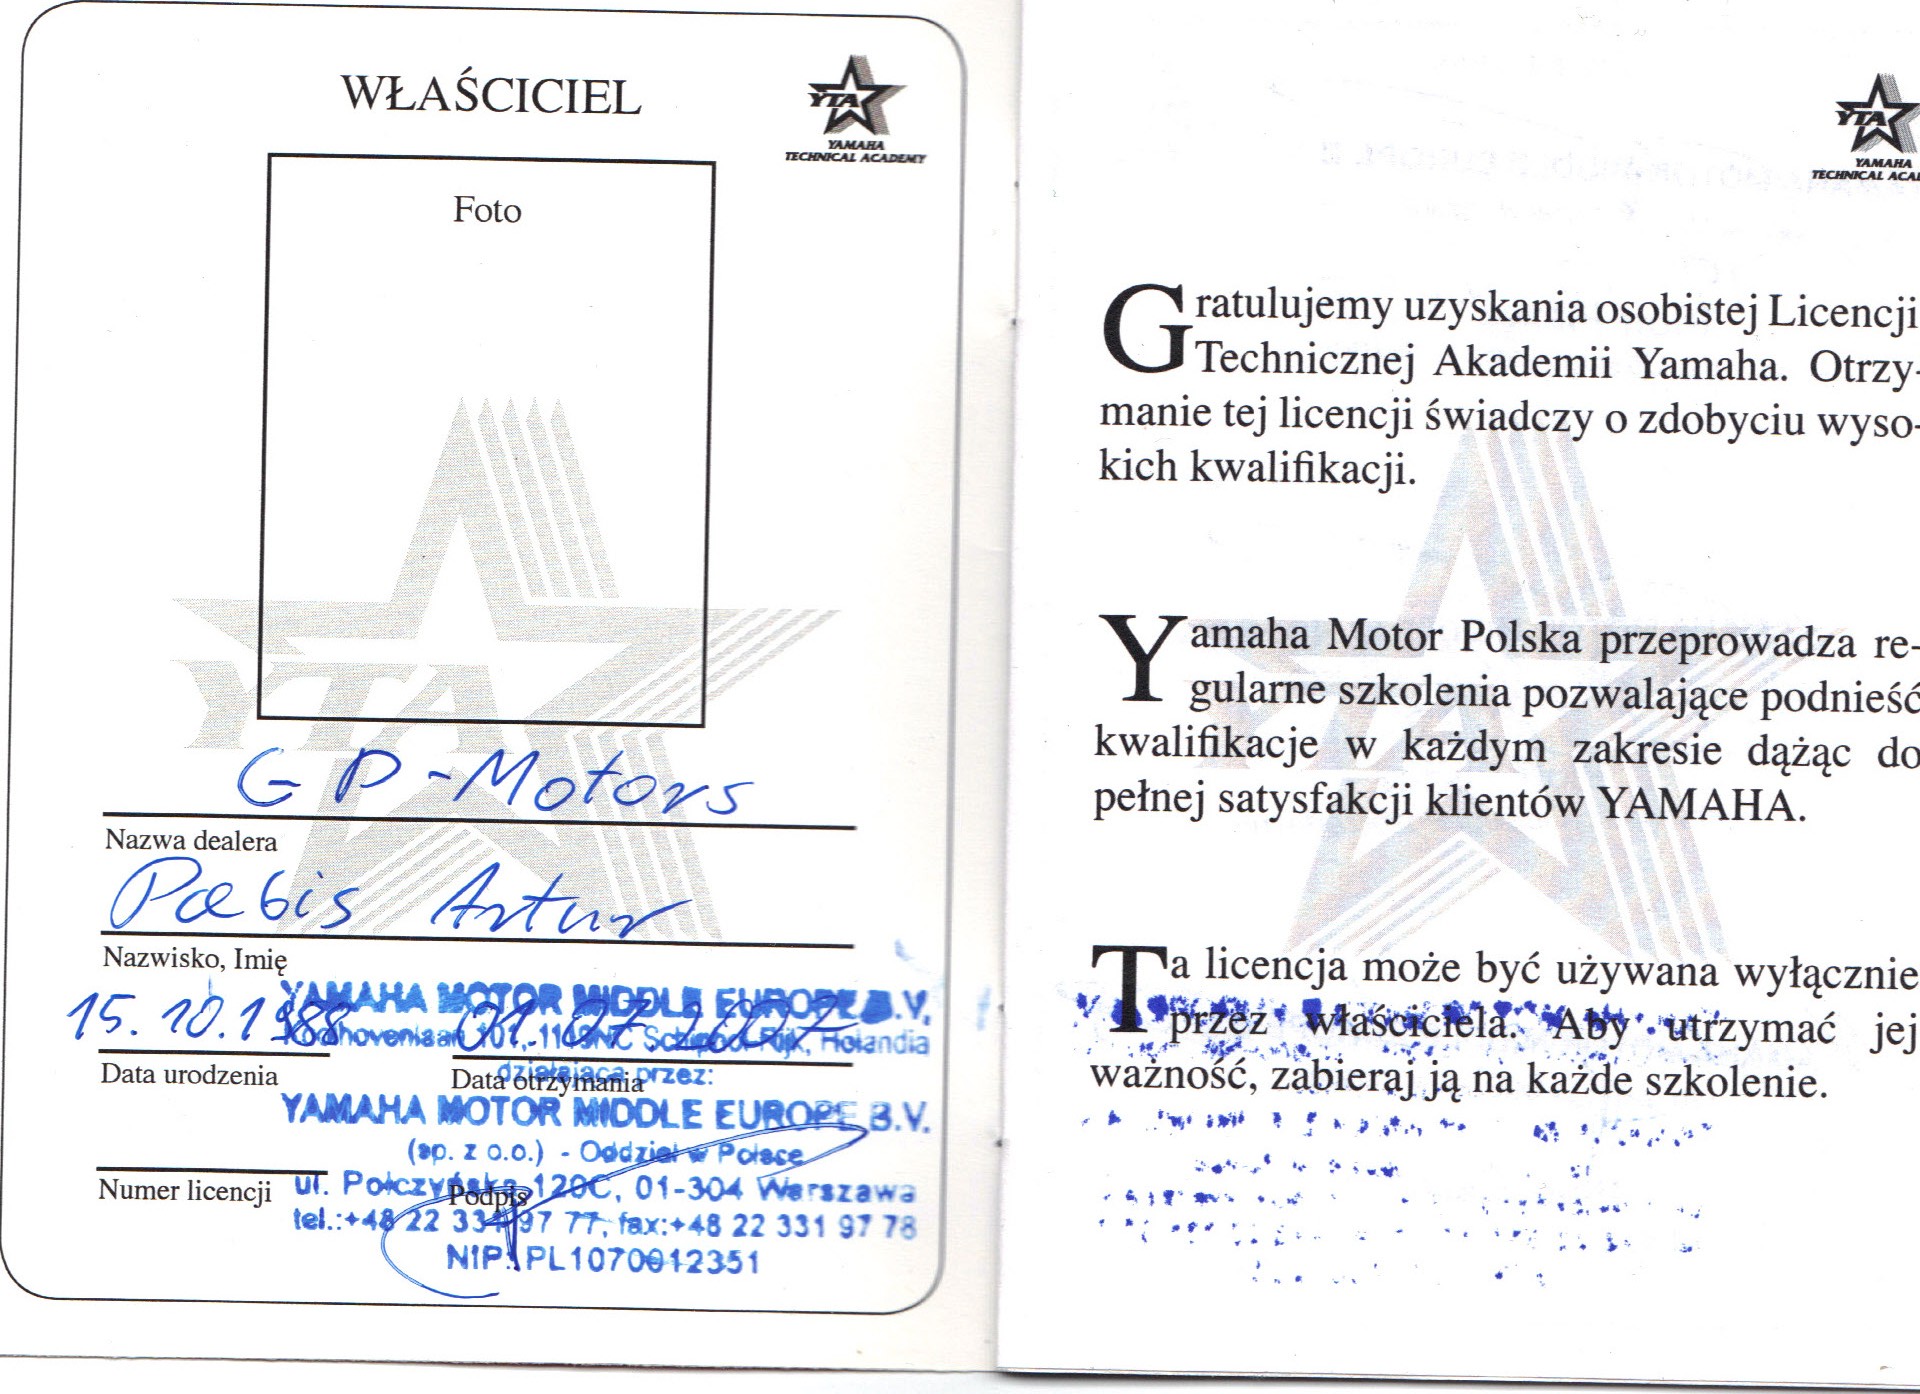 WŁAŚCICIEL
YTA
YAMAHA
TECHNICAL ACADEMY
Foto
YTA
GP-Motors
Nazwa dealera
Pabis Artur
Nazwisko, Imię
YAMAHA MOTOR MIDDLE EUROPE B.V.
15.10.1988 01.07.2007
Koolhovenlaan 101, 1119NC Schiphol-Rijk, Holandia
Data urodzenia Data otrzymania
działająca przez:
YAMAHA MOTOR MIDDLE EUROPE B.V.
(sp. z o.o.) - Oddział w Polsce
Numer licencji Podpis
ul. Połczyńska 120C, 01-304 Warszawa
tel.:+48 22 331 97 77, fax:+48 22 331 97 78
NIP: PL1070012351
YTA
YAMAHA
TECHNICAL ACA
Gratulujemy uzyskania osobistej Licencji
Technicznej Akademii Yamaha. Otrzy-
manie tej licencji świadczy o zdobyciu wyso-
kich kwalifikacji.
Yamaha Motor Polska przeprowadza re-
gularne szkolenia pozwalające podnieść
kwalifikacje w każdym zakresie dążąc do
pełnej satysfakcji klientów YAMAHA.
Ta licencja może być używana wyłącznie
przez właściciela. Aby utrzymać jej
ważność, zabieraj ją na każde szkolenie.